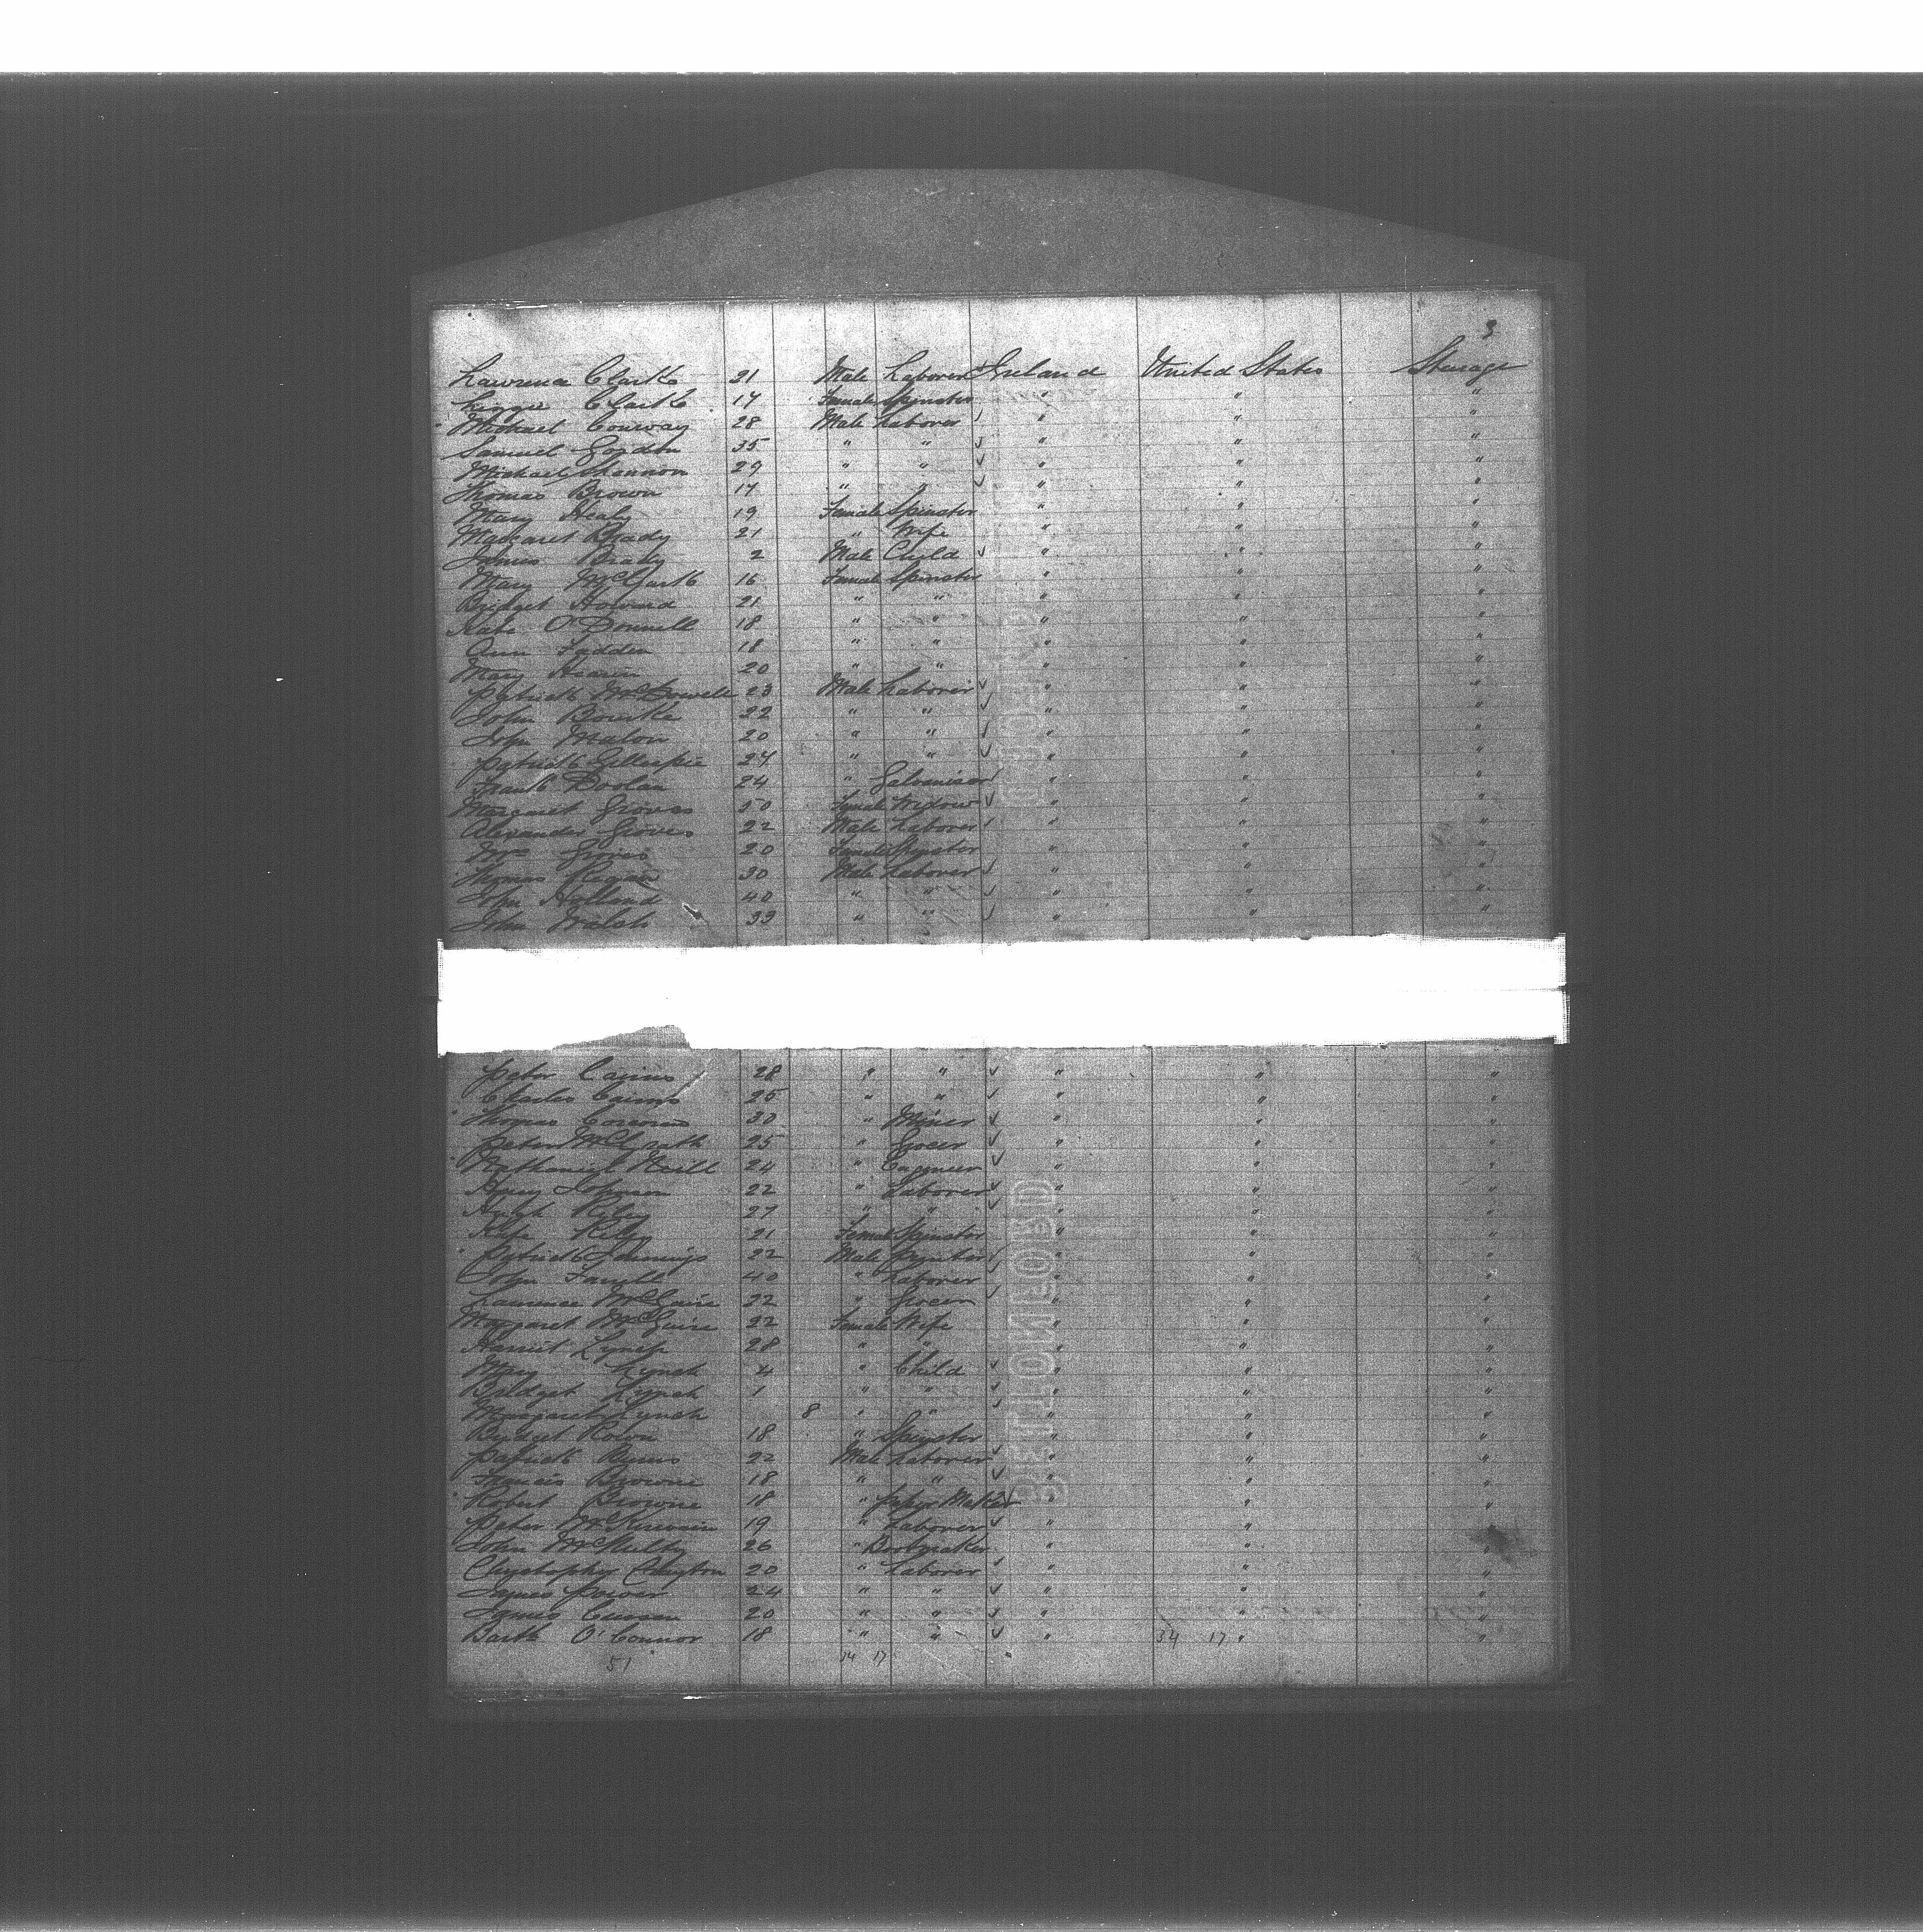 3
Lawrence Clarke 21 Male Laborer Ireland United States Steerage
Lizzie Clarke 17 Female Spinster " " "
Michael Conway 28 Male Laborer " " "
Samuel Gordon 35 " " " " "
Michael Shannon 29 " " " " "
Thomas Brown 17 " " " " "
Mary Healy 19 Female Spinster " " "
Margaret Brady 21 " Wife " " "
James Brady 2 Male Child " " "
Mary 16 Female Spinster " " "
Bridget Howard 21 " " " " "
Kate O'Donnell 18 " " " " "
Ann Fadden 18 " " " " "
Mary 20 " " " " "
Patrick 23 Male Laborer " " "
John Bourke 22 " " " " "
John Malon 20 " " " " "
Patrick Gillespie 24 " " " " "
Frank Doolan 24 " " "
Margaret Groves 50 Female Widow " " "
Alexander Groves 22 Male Laborer " " "
Groves 20 Female Spinster " " "
Thomas Regan 30 Male Laborer " " "
John Holland 40 " " " " "
John Walsh 33 " " " " "
Peter Cairns 28 " " " " "
Charles Cairns 25 " " " " "
Thomas Corcoran 30 " Miner " " "
Peter McGrath 25 " Grocer " " "
Nathaniel Neill 24 " Engineer " " "
Henry Johnson 22 " Laborer " " "
Hugh Riley 27 " " " " "
Kate Riley 21 Female Spinster " " "
Patrick Jennings 22 Male " " "
John Farrell 40 " Laborer " " "
Lawrence McGuire 22 " Grocer " " "
Margaret McGuire 22 Female Wife " " "
Harriet Lynch 28 " " " " "
Mary Lynch 4 " Child " " "
Bridget Lynch 1 " " " " "
Margaret Lynch 8 " " " " "
Bridget 18 " Spinster " " "
Patrick Burns 22 Male Laborer " " "
Francis Browne 18 " " " " "
Robert Browne 18 " Paper Maker " " "
Peter 19 " Laborer " " "
John 26 " Bootmaker " " "
Christopher Clayton 20 " Laborer " " "
James Power 24 " " " " "
James 20 " " " " "
Barth O'Connor 18 " " " 34 17 " "
51 34 17